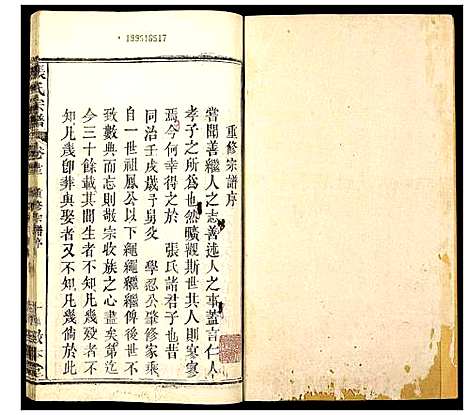 199515517
重修宗譜序
嘗聞善繼人之志善述人之事蓋言仁人
孝子之所爲也然曠觀斯世其人則寥寥
焉今何幸得之於 張氏諸君子也昔
同治壬戌歲予舅父 學忍公肇修家乘
自一世祖鳳公以下繩繩繼繼俾後世不
致數典而忘則敬宗收族之心盡矣第迄
今三十餘載其間生者不知凡幾歿者不
知凡幾卽葬與娶者又不知凡幾倘於此
張氏宗譜
重修宗譜序